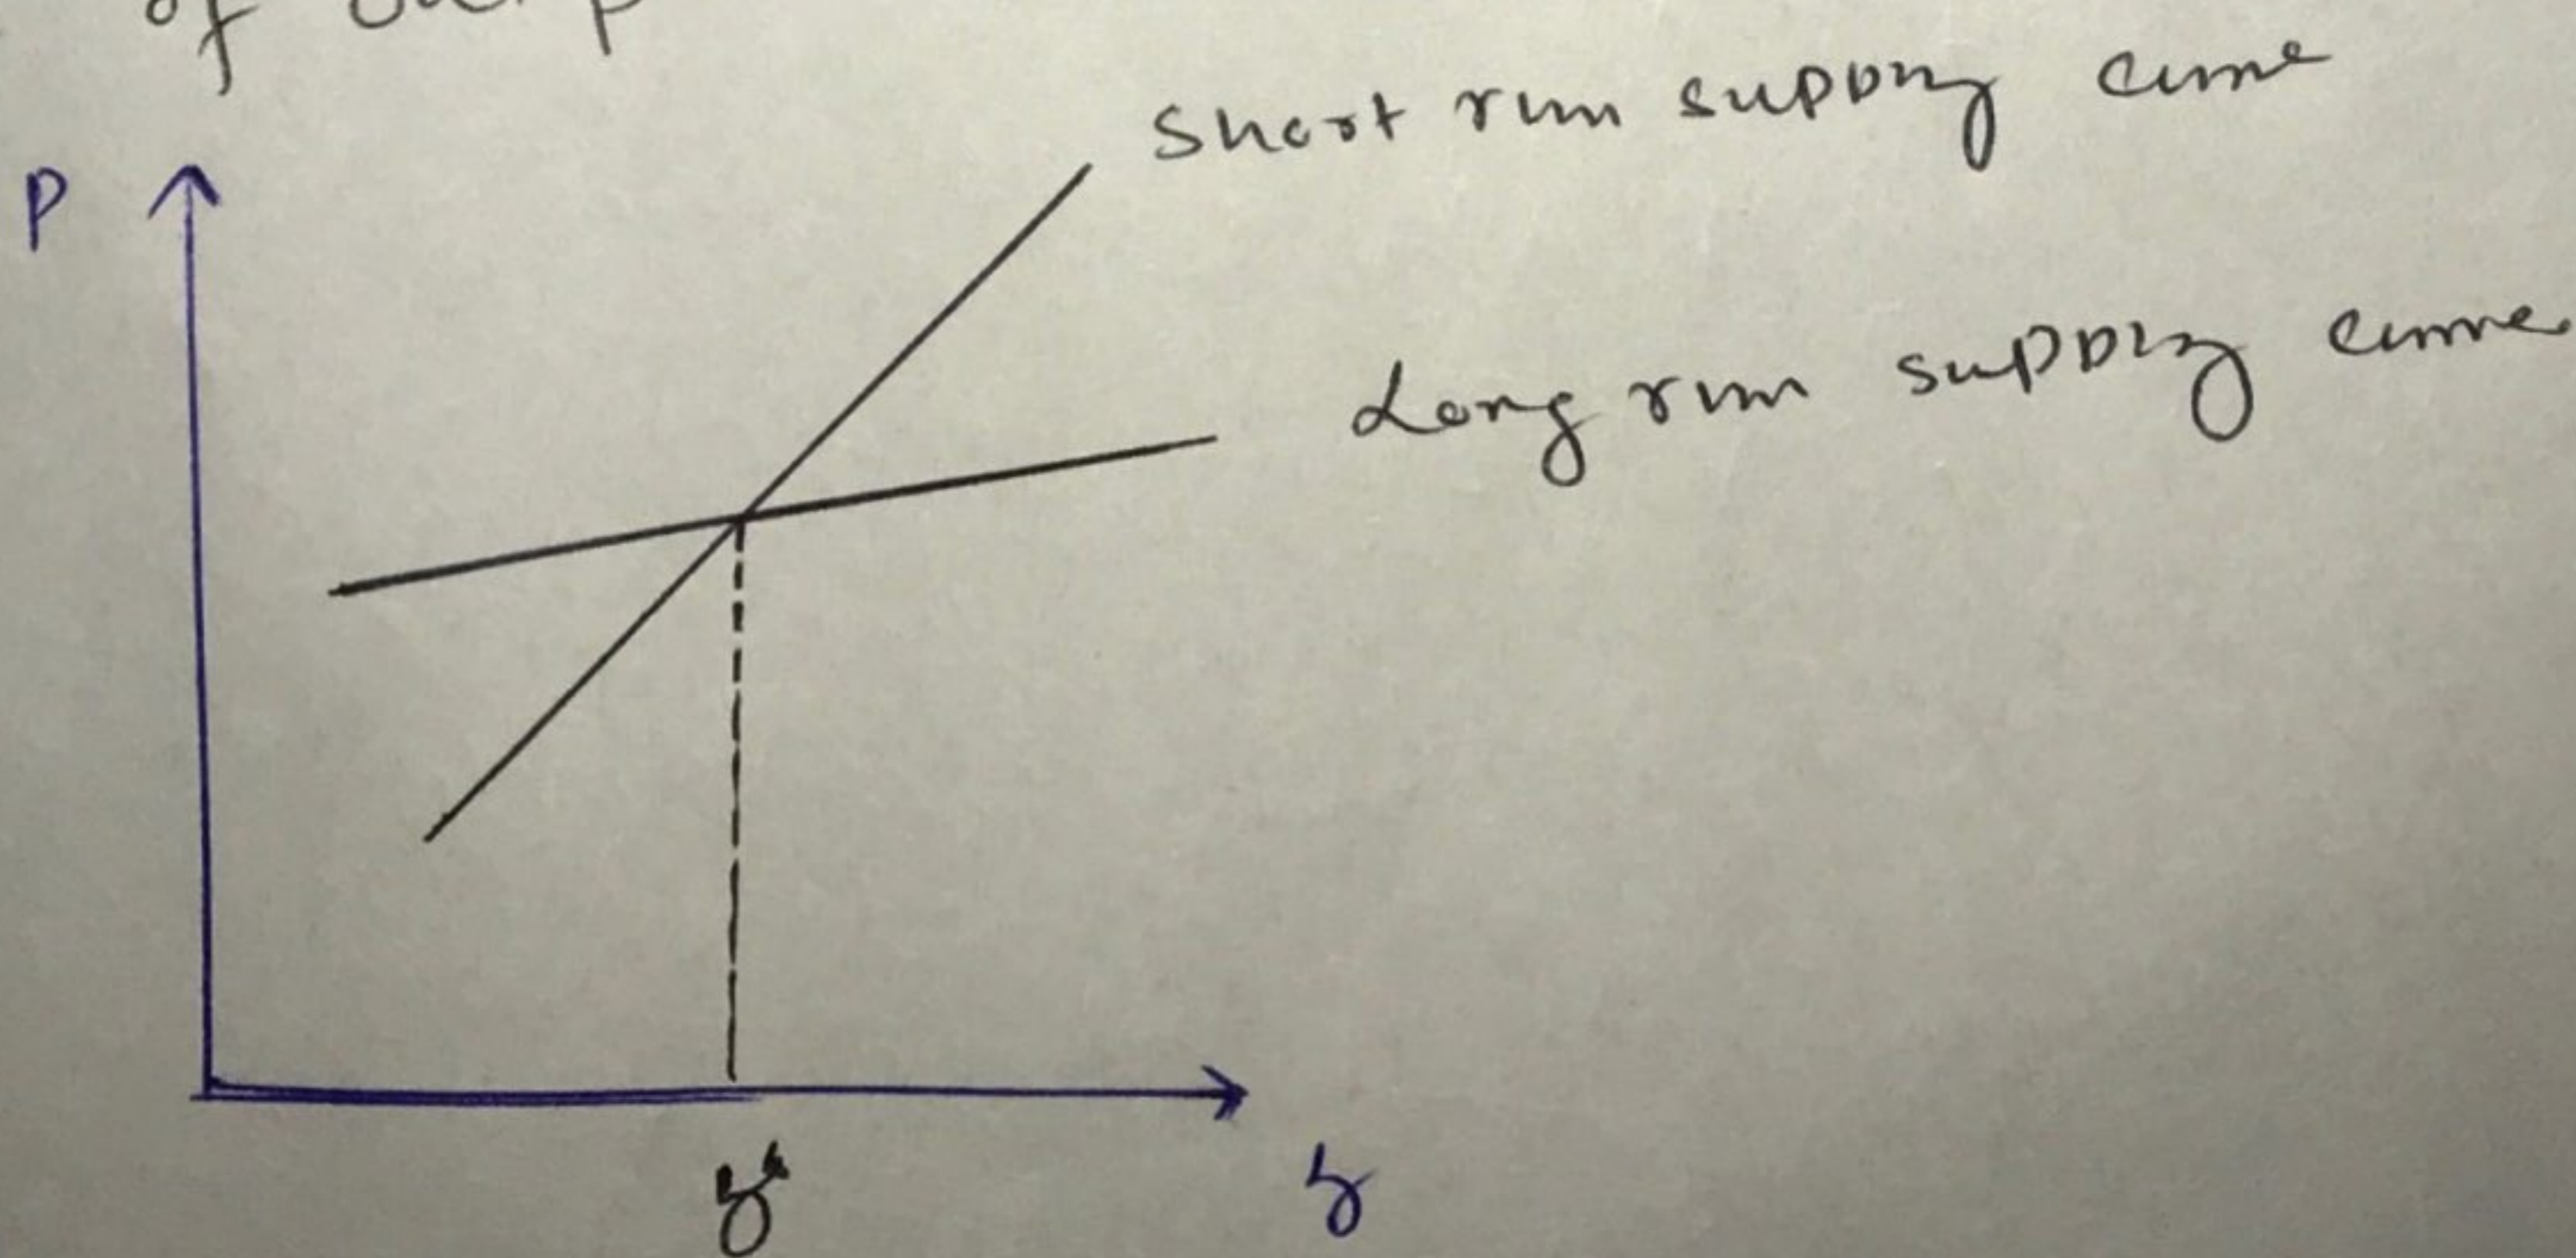 of
Short run supply curve
P
Long run supply curve
y*
y